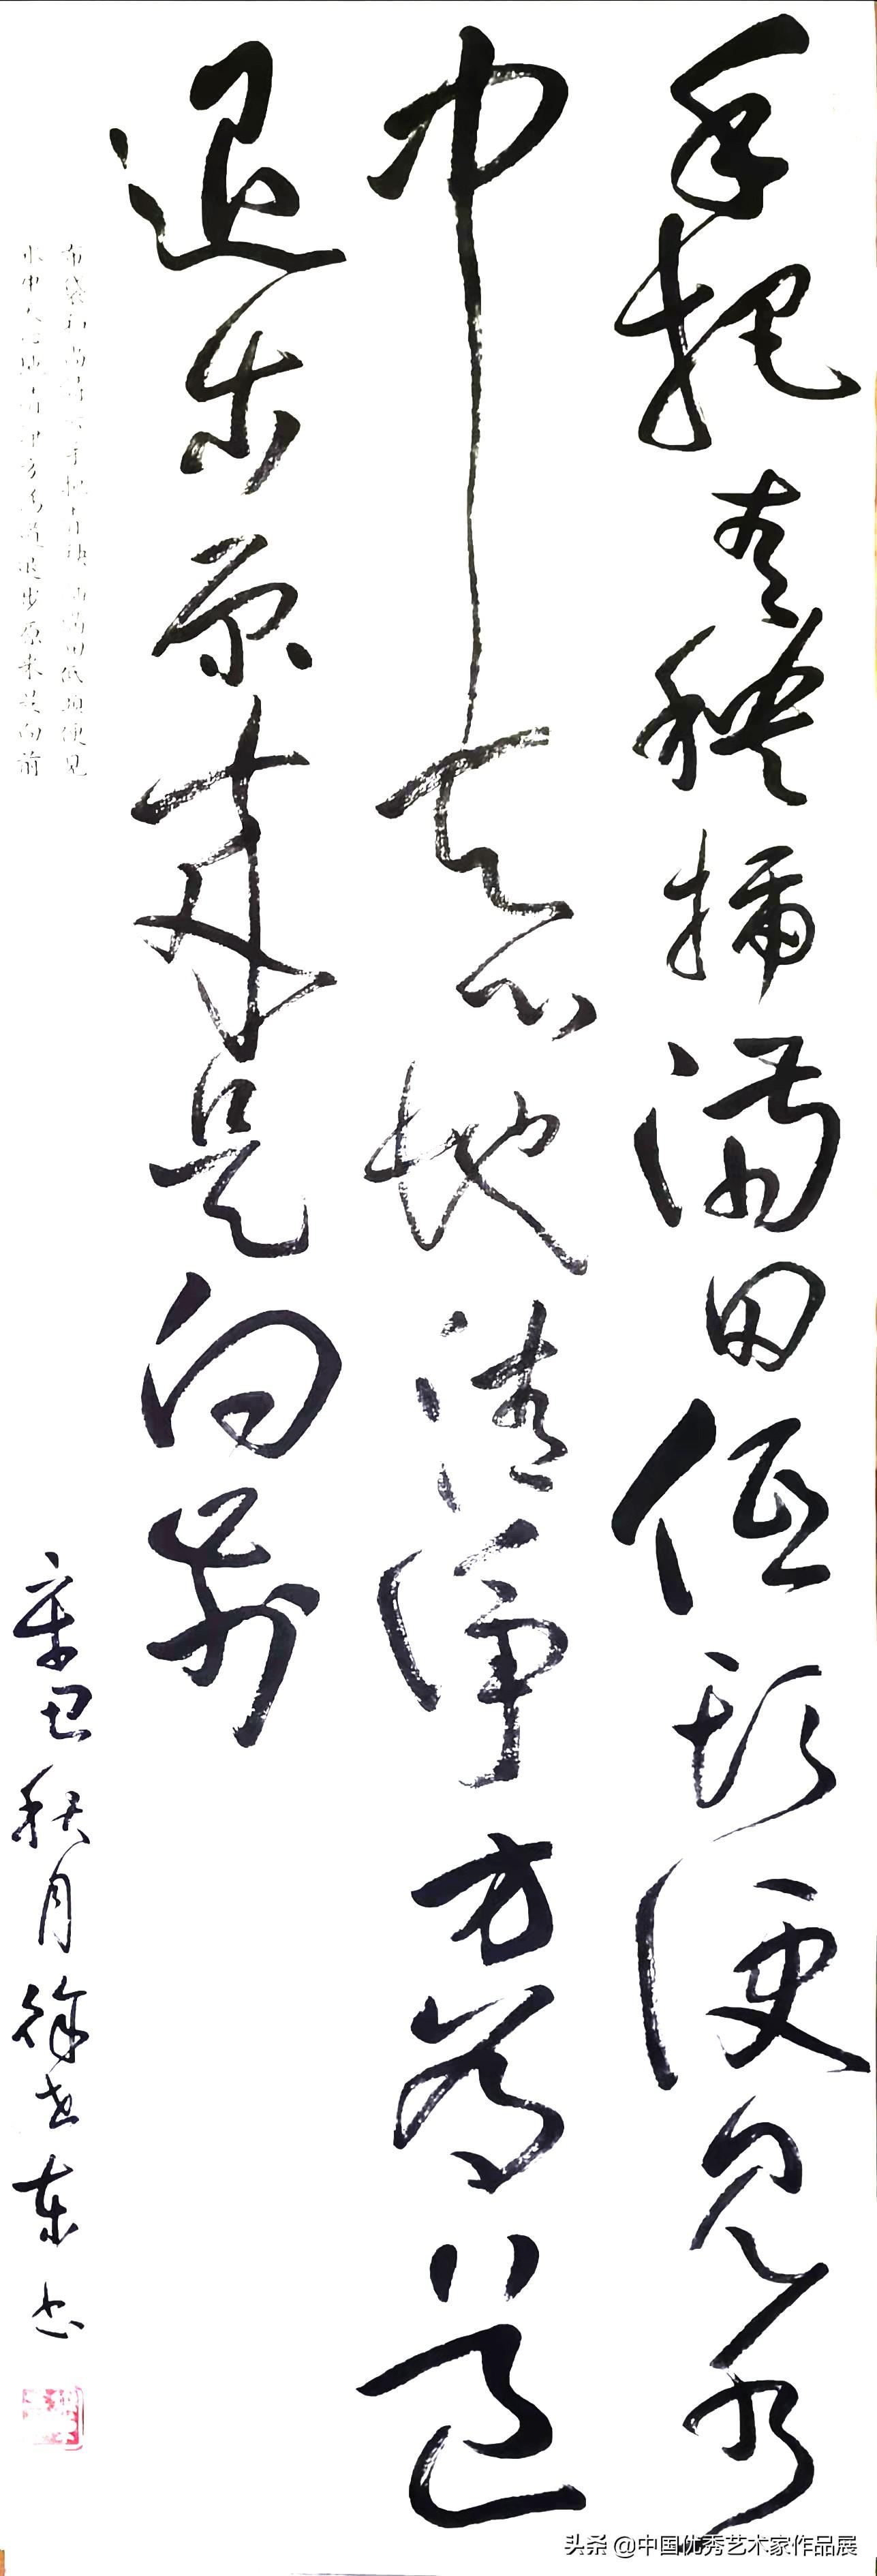 手把青秧插满田低头便见水
中天心地清净方为道
退步原来是向前
布袋和尚诗云手把青秧插满田低头便见
水中天心地清净方为道退步原来是向前
辛丑秋月徐 东书
头条 @中国优秀艺术家作品展